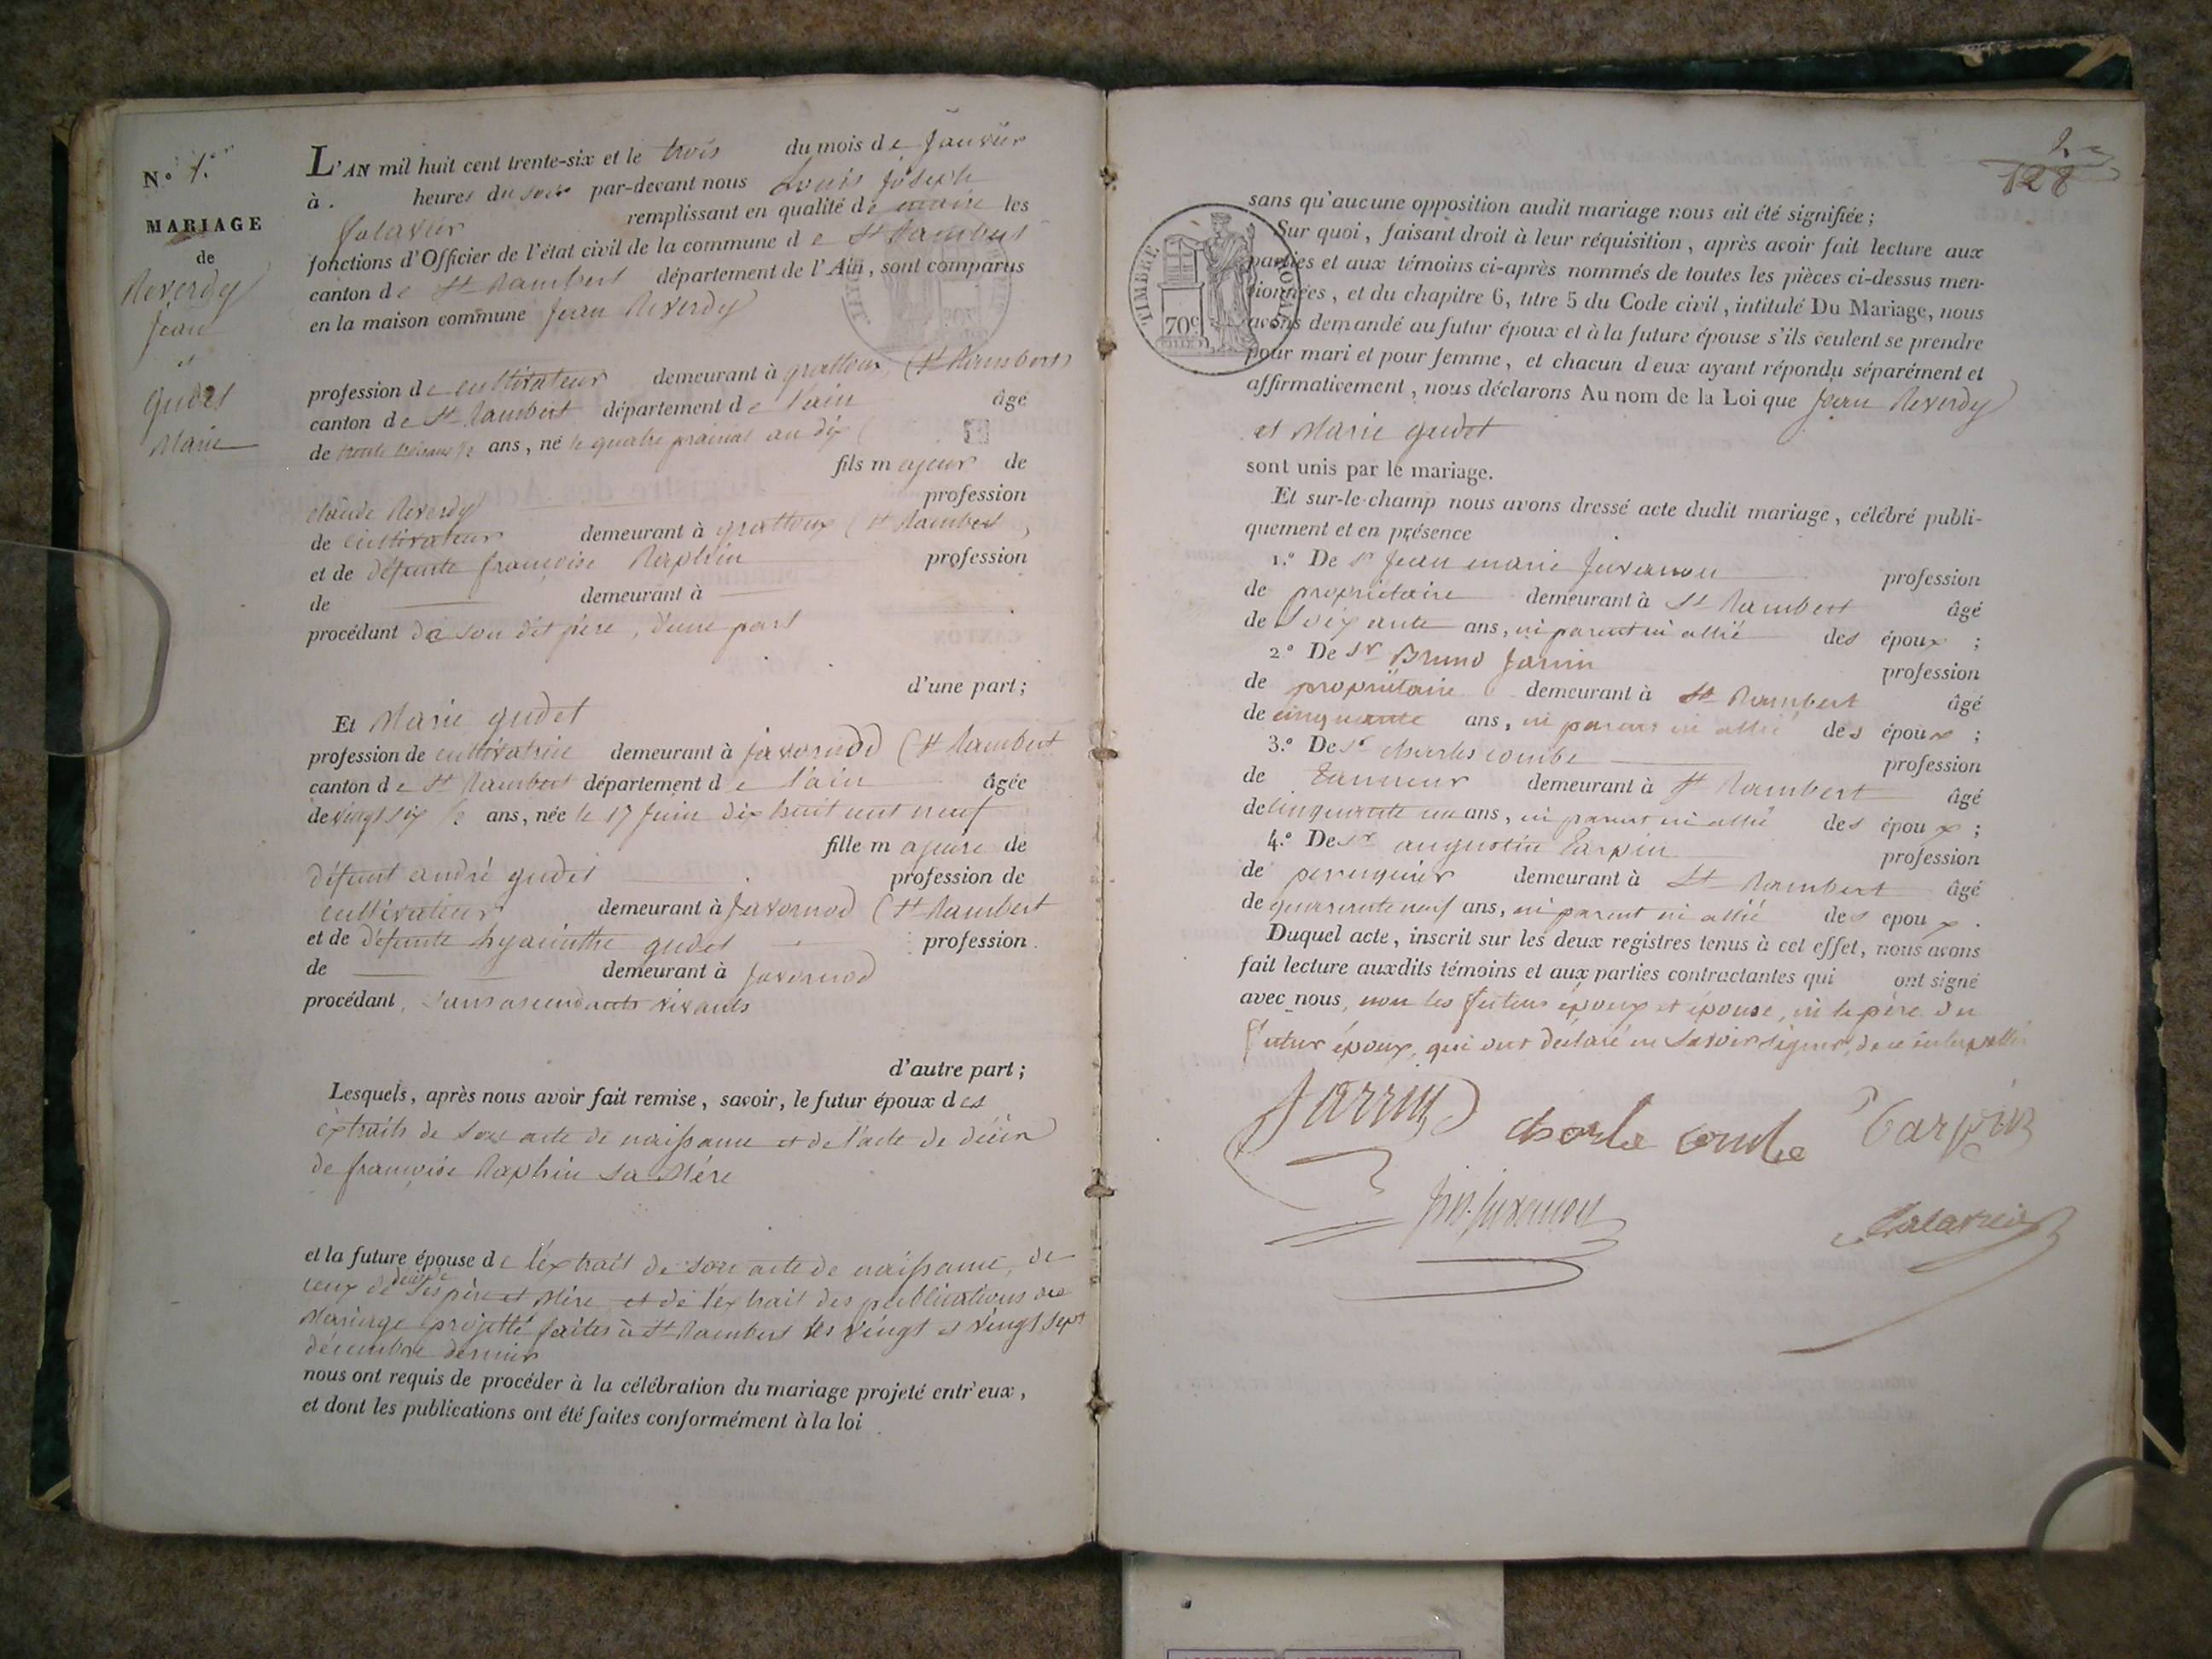 N.o 1.er
MARIAGE
de
Reverdy
Jean
et
gudet
Marie
L'AN mil huit cent trente-six et le trois du mois de Janvier
à . heures du soir par-devant nous Louis Joseph
falavier remplissant en qualité de maire les
fonctions d'Officier de l'état civil de la commune de St Rambert
canton de St Rambert département de l'Ain, sont comparus
en la maison commune Jean Reverdy
profession de cultivateur demeurant à grattoux (St Rambert)
canton de St Rambert département de l'ain âgé
de trente trois ans 1/2 ans, né le quatre prairial an dix
fils majeur de
claude Reverdy profession
de cultivateur demeurant à grattoux (St Rambert)
et de défunte françoise Raphin profession
de demeurant à
procédant de son dit père, d'une part
d'une part;
Et Marie gudet
profession de cultivatrice demeurant à javornod (St Rambert
canton de St Rambert département de l'ain âgée
de vingt six 1/2 ans, née le 17 Juin dix huit cent neuf
fille majeure de
défunt andré gudet profession de
cultivateur demeurant à Javornod (St Rambert
et de défunte hyacinthe gudet profession
de demeurant à Javornod
procédant, sans ascendants vivants
d'autre part;
Lesquels, après nous avoir fait remise, savoir, le futur époux des
extraits de son acte de naissance et de l'acte de décès
de françoise Raphin sa Mère
et la future épouse de l'extrait de son acte de naissance, de
ceux de décès de ses père et Mère et de l'extrait des publications du
Mariage projetté faites à St Rambert les vingt et vingt sept
décembre dernier
nous ont requis de procéder à la célébration du mariage projeté entr'eux,
et dont les publications ont été faites conformément à la loi
128
TIMBRE ROYAL
70c
sans qu'aucune opposition audit mariage nous ait été signifiée;
Sur quoi, faisant droit à leur réquisition, après avoir fait lecture aux
parties et aux témoins ci-après nommés de toutes les pièces ci-dessus men-
tionnées, et du chapitre 6, titre 5 du Code civil, intitulé Du Mariage, nous
avons demandé au futur époux et à la future épouse s'ils veulent se prendre
pour mari et pour femme, et chacun d'eux ayant répondu séparément et
affirmativement, nous déclarons Au nom de la Loi que Jean Reverdy
et Marie gudet
sont unis par le mariage.
Et sur-le-champ nous avons dressé acte dudit mariage, célébré publi-
quement et en présence
1.o De Sr Jean marie Juvanon profession
de propriétaire demeurant à St Rambert âgé
de Soixante ans, ni parent ni allié des époux ;
2.o De Sr Bruno Jarrin profession
de propriétaire demeurant à St Rambert âgé
de cinquante ans, ni parent ni allié des époux ;
3.o De Sr charles combe profession
de tanneur demeurant à St Rambert âgé
de cinquante un ans, ni parent ni allié des époux ;
4.o De Sr augustin Tarpin profession
de perruquier demeurant à St Rambert âgé
de quarante neuf ans, ni parent ni allié des époux .
Duquel acte, inscrit sur les deux registres tenus à cet effet, nous avons
fait lecture auxdits témoins et aux parties contractantes qui ont signé
avec nous, non les futurs époux et épouse, ni le père du
futur époux, qui ont déclaré ne Savoir Signer, de ce interpellés
Jarrin charle combe Tarpin
jm. Juvanon falavier